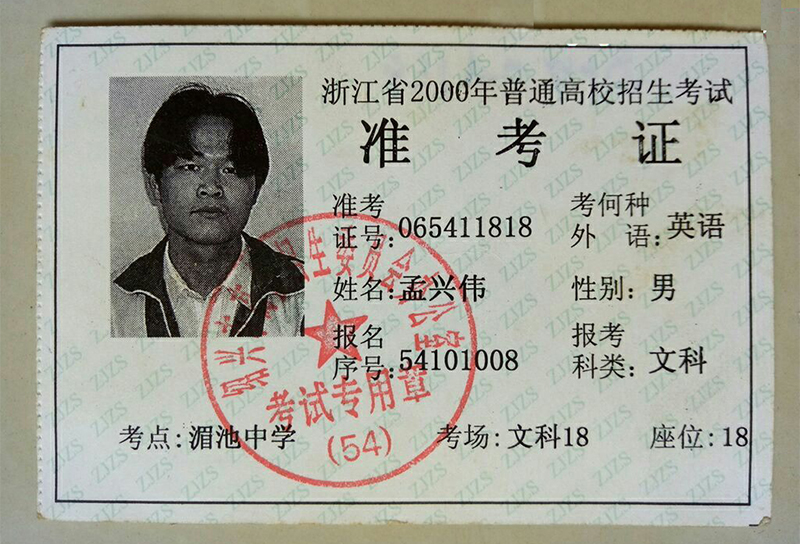 浙江省2000年普通高校招生考试
准考证
准考证号:065411818 考何种外语:英语
姓名:孟兴伟 性别:男
报名序号:54101008 报考科类:文科
考点:湄池中学 考场:文科18 座位:18
招生委员会办公室
考试专用章
(54)
ZJZS